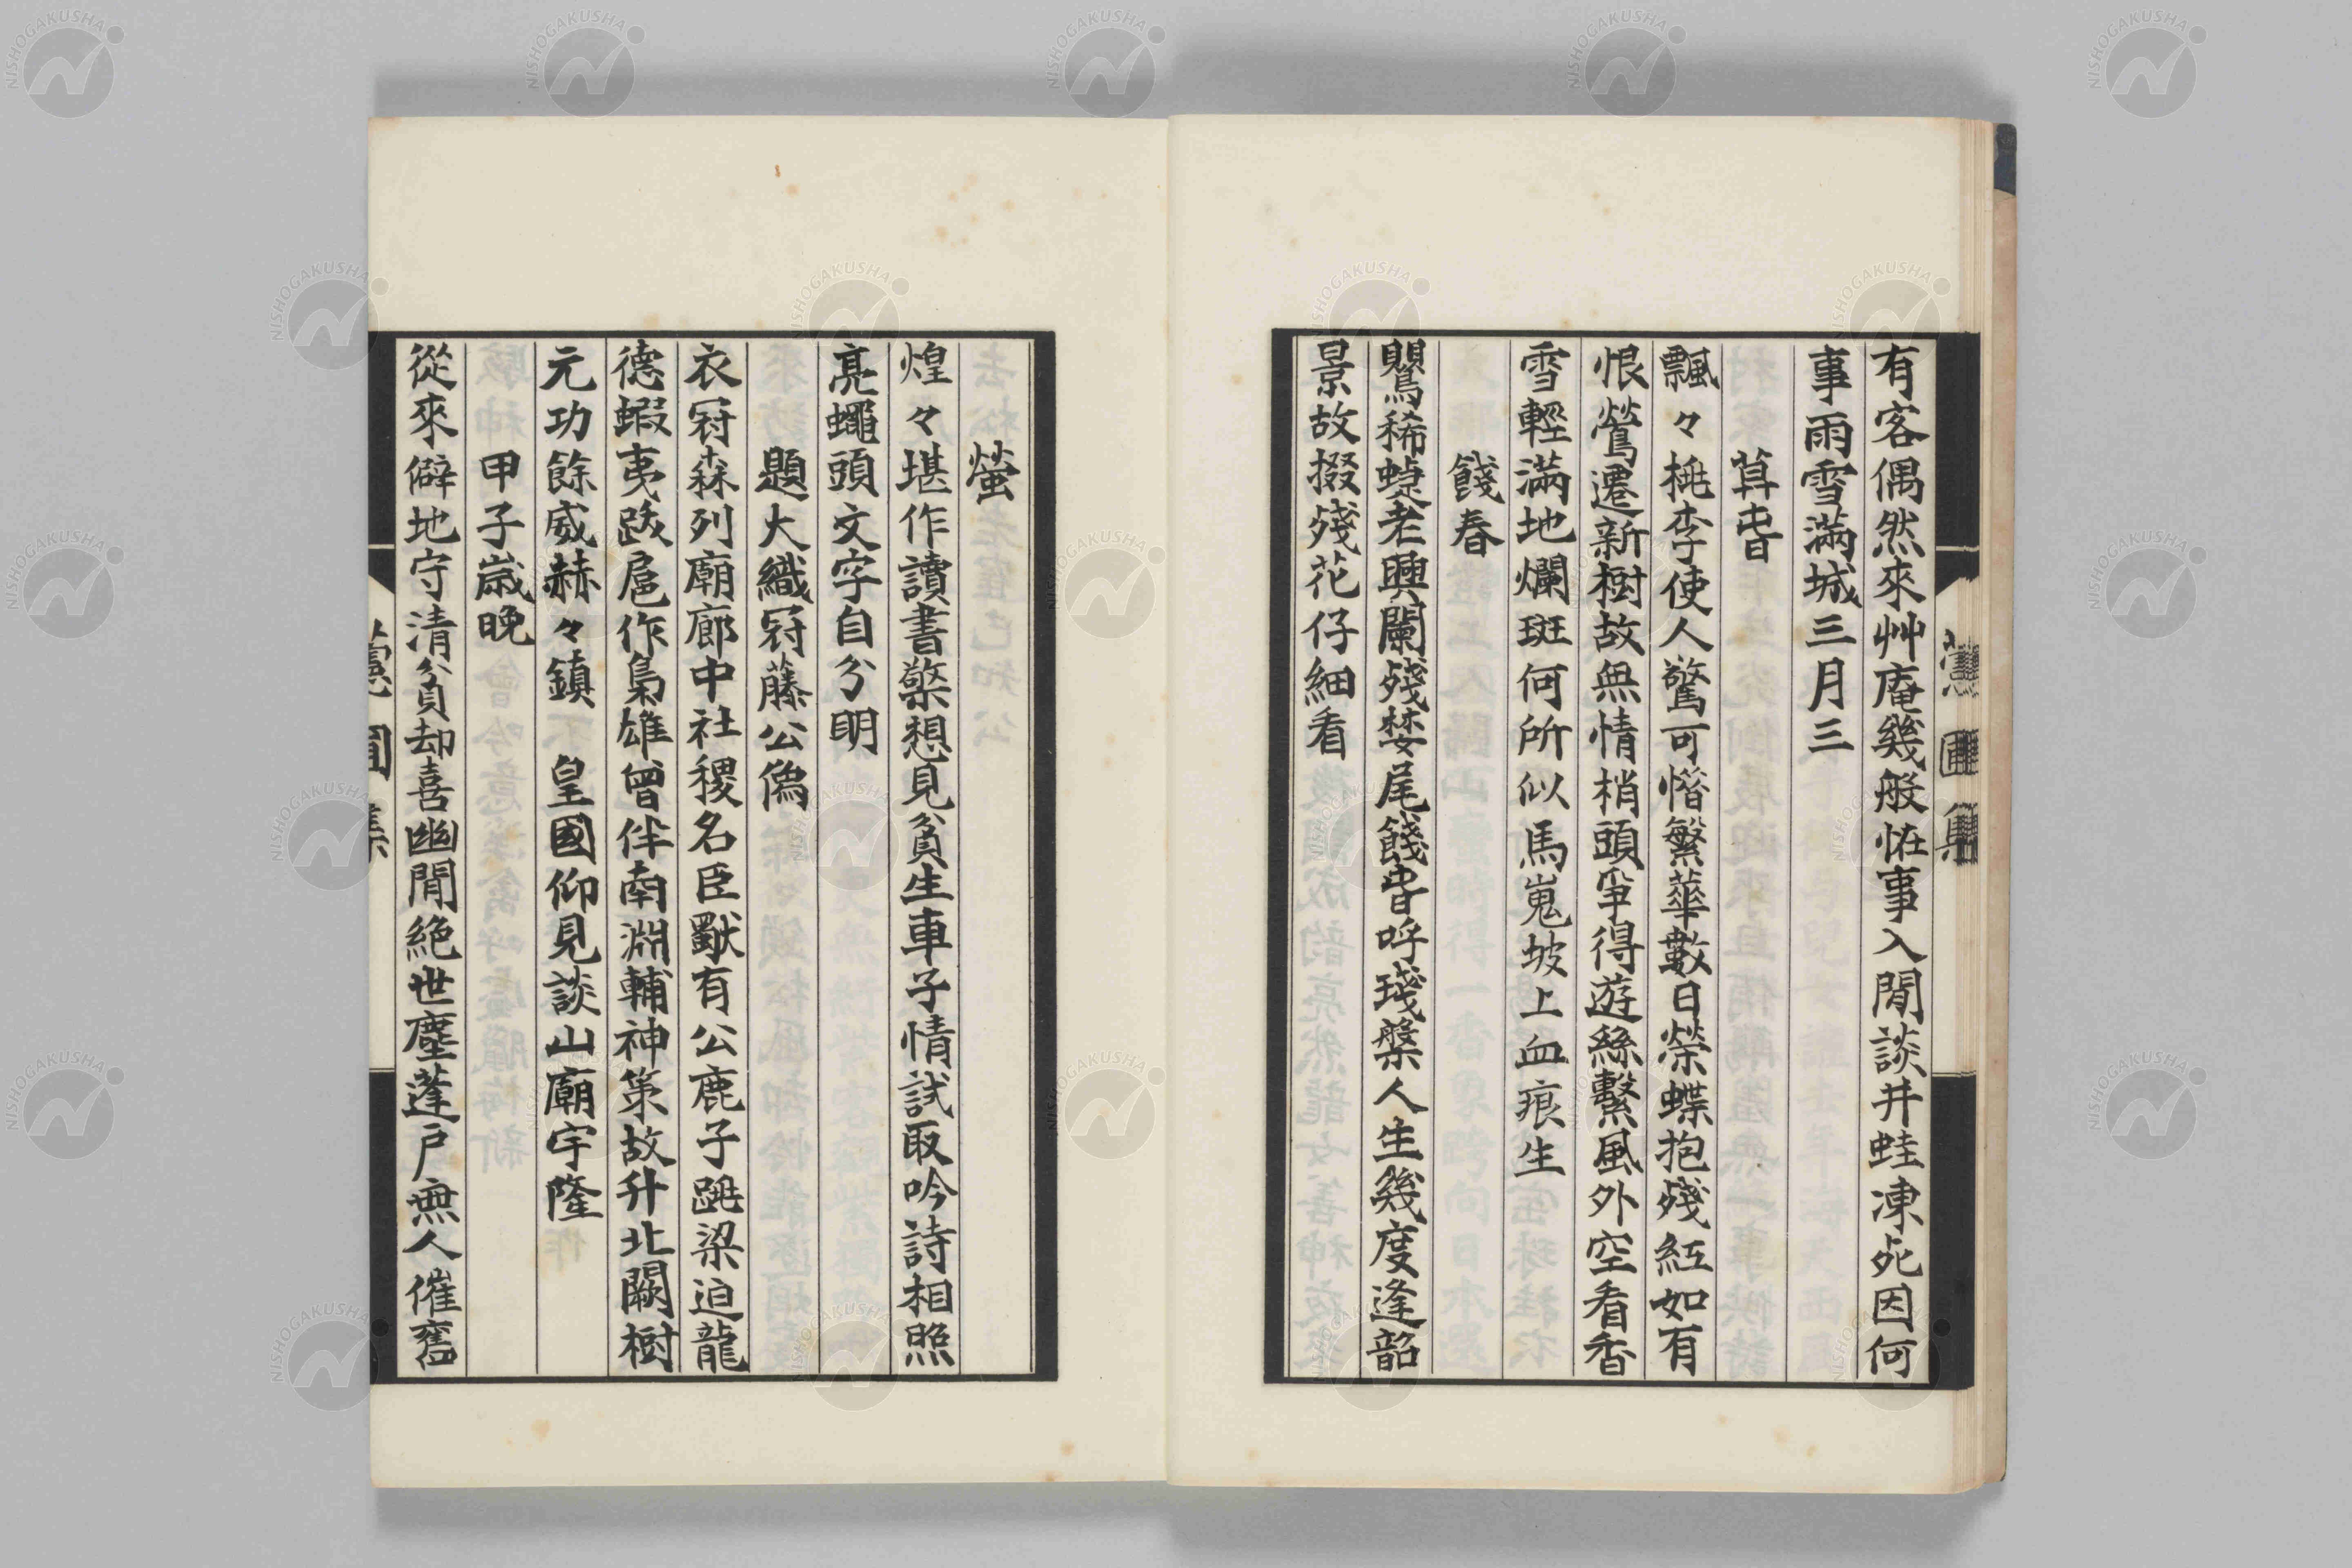 有客偶然來艸庵幾般恠事入閒談井蛙凍死因何
事雨雪滿城三月三
算旾
飄々桃李使人驚可憯繁華數日榮蝶抱殘紅如有
恨鶯遷新樹故無情梢頭爭得遊絲繫風外空看香
雪輕滿地爛斑何所似馬嵬坡上血痕生
餞春
鸎稀蜨老興闌殘婪尾餞旾呼琖槃人生幾度逢韶
景故掇殘花仔細看
螢
煌々堪作讀書檠想見貧生車子情試取吟詩相照
亮蠅頭文字自分明
題大織冠藤公像
衣冠森列廟廊中社稷名臣獸有公鹿子跳梁迫龍
德蝦夷跋扈作梟雄曾伴南淵輔神策故升北闕樹
元功餘威赫々鎮 皇國仰見談山廟宇隆
甲子歲晚
從來僻地守清貧却喜幽閒絕世塵蓬戶無人催舊
圃集
NISHOGAKUSHA